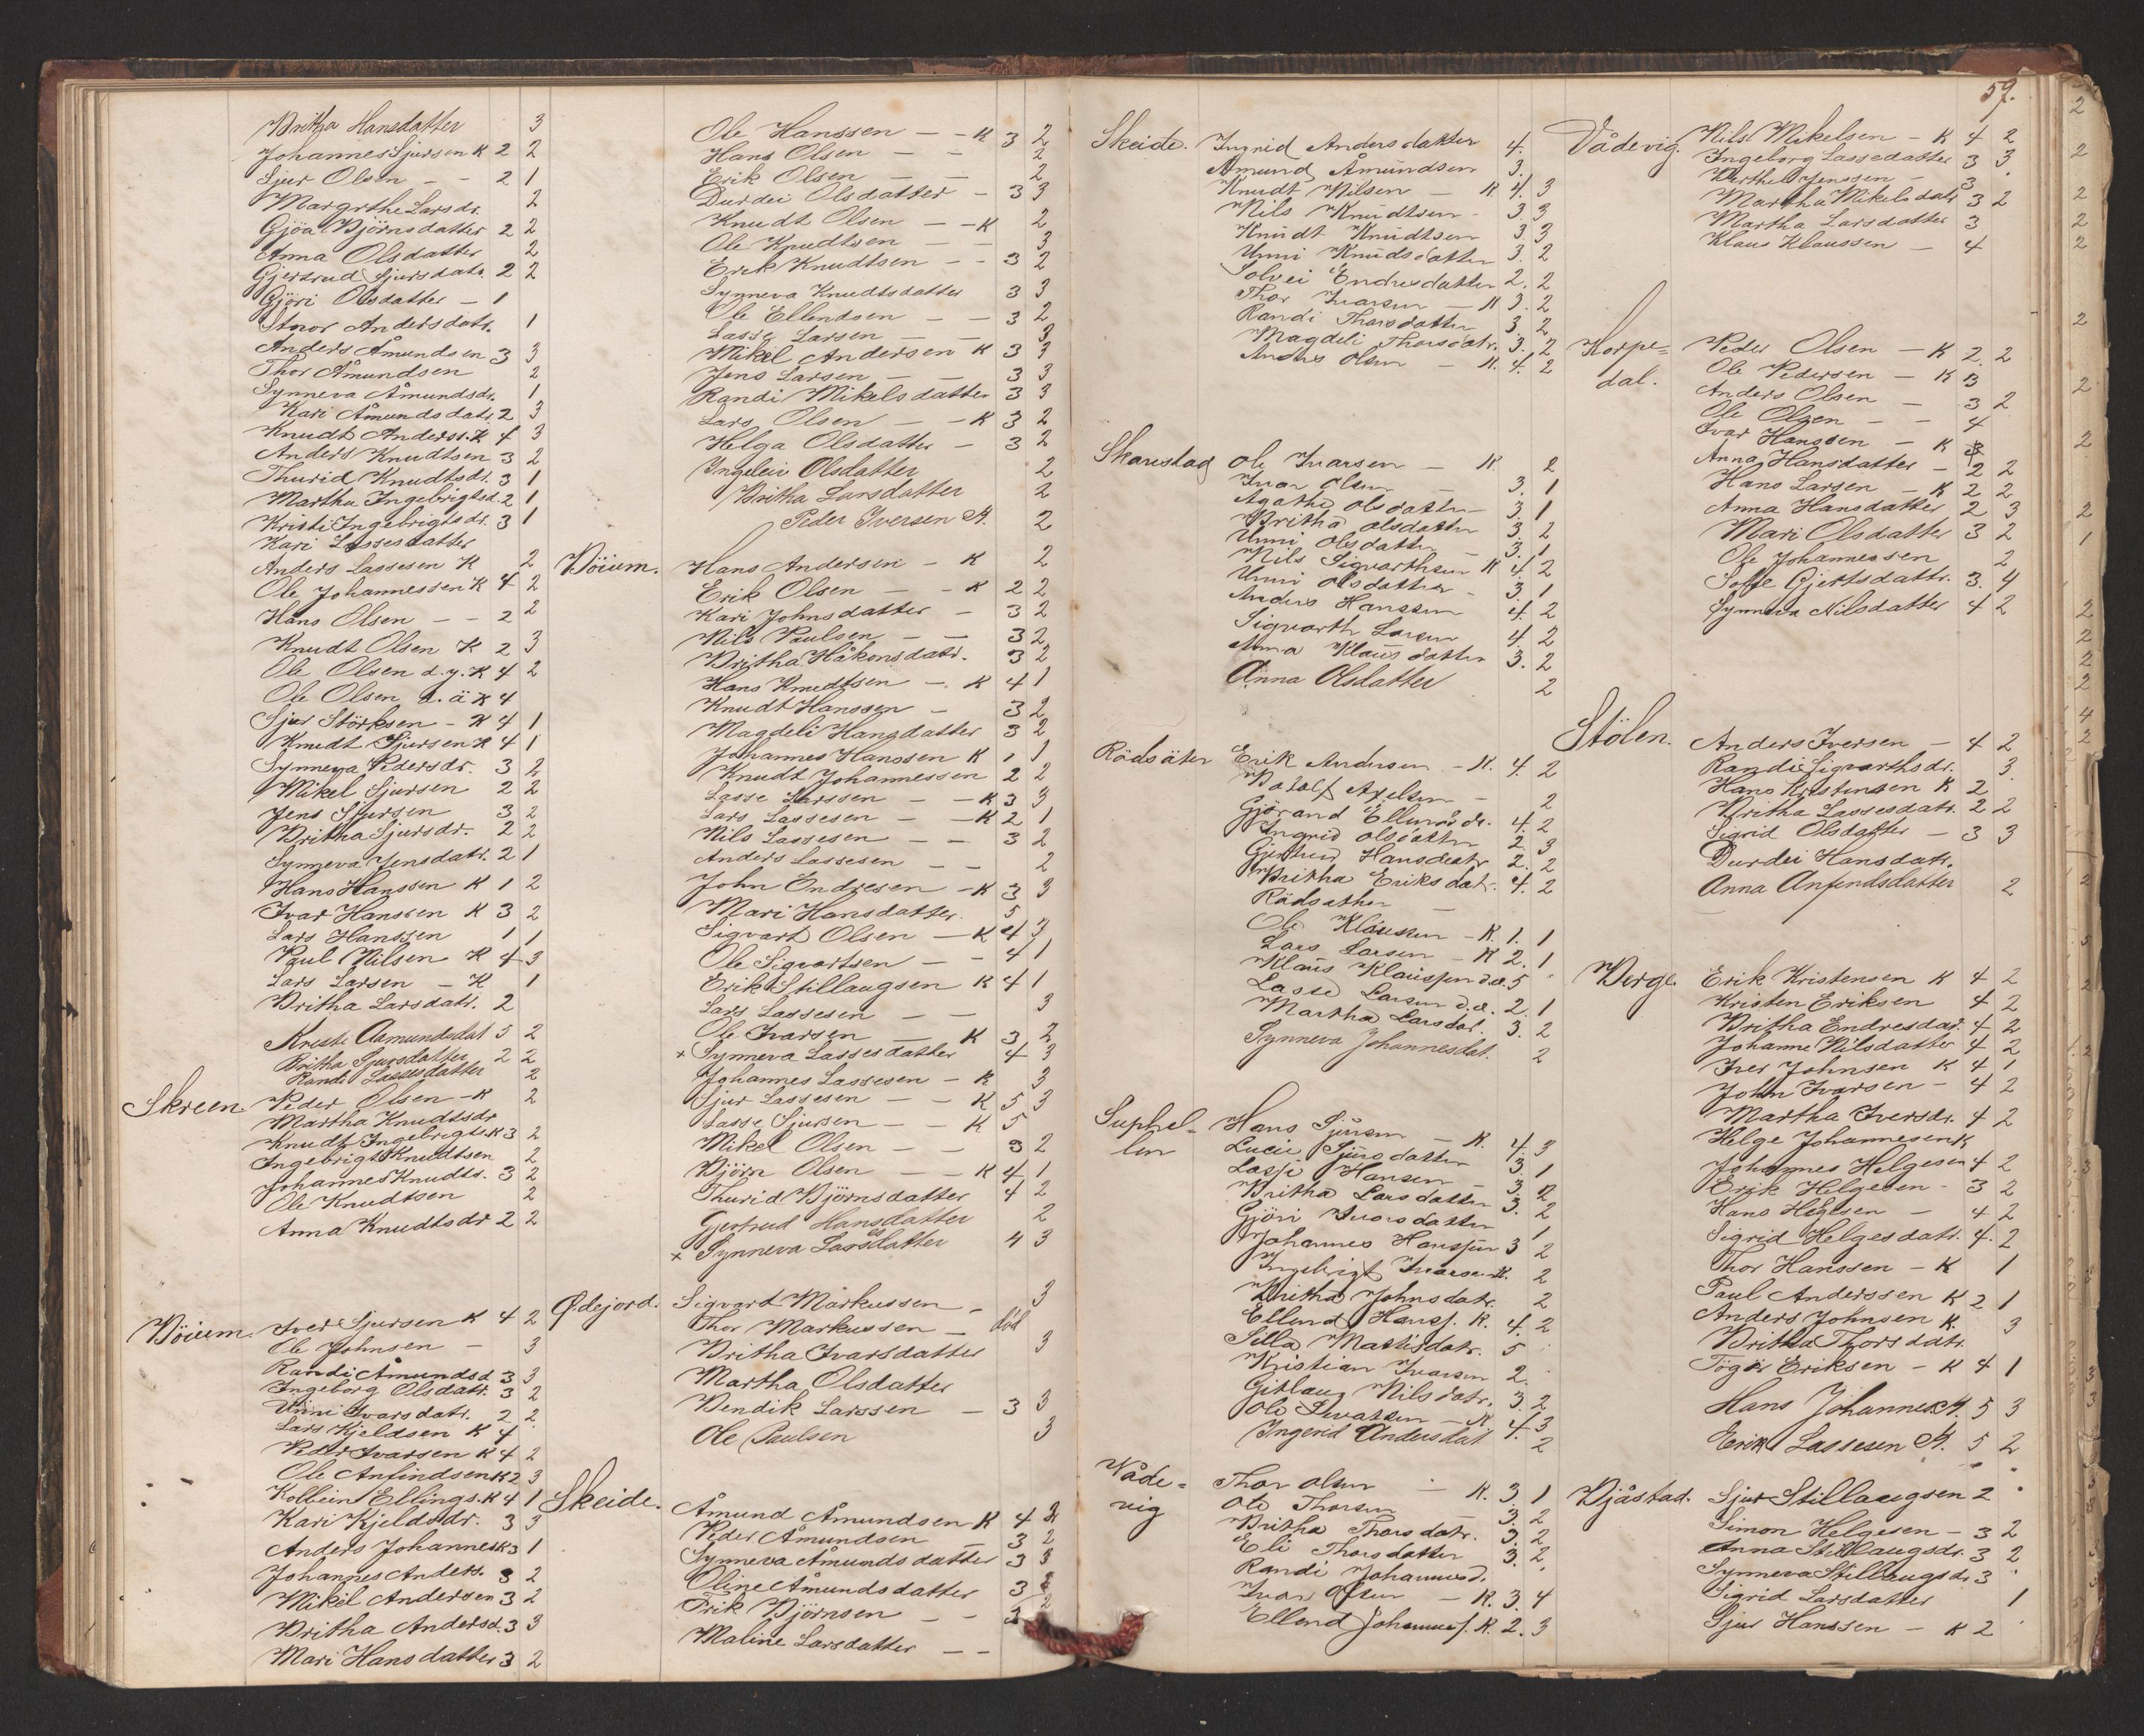 Britha Hansdatter 3
Johannes Sjursen K 2 2
Sjur Olsen - - 2 1
Margrthe Larsdr. 2
Gjöa Björnsdatter 2 2
Anna Olsdatter 2
Gjertrud Sjursdatr. 2 2
Gjöri Olsdatter - 1
Anders Åmundsen 3 3
Thor Åmundsen 2
Synneva Åmundsdr. 1
Kari Åmundsdatr 2 3
Knudt Anderss. K 4 3
Anders Knudtsen 3 2
Thurid Knudtsdr. 3 1
Martha Ingebrigtsd. 2 1
Kristi Ingebrigtsdr. 3 1
Kari Lassesdatter
Anders Lassesen K 2
Ole Johannessen K 4 2
Hans Olsen - - 2 2
Knudt Olsen K 2 3
Ole Olsen d.y. K 4 2
Ole Olsen d.ä K 4
Sjur Störksen - K 4 1
Knudt Sjursen K 4 1
Synneva Pedersdr. 3 2
Mikel Sjursen 2 2
Jens Sjursen 3 2
Britha Sjursdr. 2 2
Synneva Jensdatr. 2 1
Hans Hanssen K 1 2
Ivar Hanssen K 3 2
Lars Hanssen 1 1
Paul Nilsen K 4 3
Lars Larsen - K 1
Britha Larsdatr. 2
Kristi Aamundsdat 5 2
Britha Sjursdatter 2 2
Randi Lassesdatter 2
Skreen. Peder Olsen - K 2
Martha Knudtsdr
Knudt Ingebrigts. K 3 2
Ingebrigt Knudtsen 2
Johannes Knudts. 3 2
Ole Knudtsen 2
Anna Knudtsdr 2 2
Böium. Iver Sjursen K 4 2
Ole Johnsen - 3
Randi Åmundsd 3 3
Ingeborg Olsdatr. 3 2
Unni Ivarsdatr. 2 2
Lars Kjeldsen K 4
Peder Ivarsen K 4 2
Ole Anfindsen K 2 3
Kolbein Ellings. K 4 1
Kari Kjeldsdr. 3 3
Anders Johannes. K 3 1
Johannes Anders. 3 2
Mikel Andersen 3 2
Britha Andersd. 3 3
Mari Hansdatter 3 2
Ole Hanssen - - K 3 2
Hans Olsen - - 2
Erik Olsen - - 2
Durdei Olsdatter - 3 3
Knudt Olsen - - K 2
Ole Knudtsen - - 3
Erik Knudtsen - - 3 2
Synneva Knudtsdatter 3 3
Ole Ellendsen - - 3 2
Lasse Larsen - - 3
Mikel Andersen K 3 3
Jens Larsen - - 3 3
Randi Mikelsdatter 3 3
Lars Olsen - - K 3 2
Helga Olsdatter - 3 2
Ingeleiv Olsdatter 2
Britha Larsdatter 2
Peder Iversen K. 2
Böium. Hans Andersen - K 2
Erik Olsen - - K 2 2
Kari Johnsdatter - 3 2
Nils Paulsen - - 3 2
Britha Håkonsdatr. 3 2
Hans Knudtsen - K 4 1
Knudt Hanssen - 3 2
Magdeli Hansdatter 3 2
Johannes Hanssen K 1 1
Knudt Johannessen 2 2
Lasse Larssen - - K 3 3
Lars Lassesen - - K 2 1
Nils Lassesen - - 3 2
Anders Lassesen - - 2
John Endresen - K 3 3
Mari Hansdatter 5
Sigvart Olsen - K 4 3
Ole Sigvartsen - - 4 1
Erik Stillaugsen K 4 1
Lars Lassesen - - 3
Ole Ivarsen - K 3 2
x Synneva Lassesdatter 4 3
Johannes Lassesen - K 3
Sjur Lassesen - - K 5 3
Lasse Sjursen - - K 5
Mikel Olsen - - 3 2
Björn Olsen - - K 4 1
Thurid Björnsdatter 4 2
Gjertrud Hansdatter 2
x Synneva Larsdatter 4 3
Ødejord. Sigvard Markussen - 3
Thor Markussen - död
Britha Ivarsdatter 3
Martha Olsdatter
Bendik Larssen - 3 3
Ole Paulsen 3
Skeide. Åmund Åmundsen K 4 2
Peder Åmundsen - 3 2
Synneva Åmundsdatter 3 3
Oline Åmundsdatter 3
Erik Björnsen - - 3 2
Maline Larsdatter - -
57.
Skeide. Ingrid Andersdatter 4.
Åmund Åmundsen 3.
Knudt Nilsen - K 4. 3
Nils Knudtsen - 3. 3
Knudt Knudtsen 3. 3
Unni Knudsdatter 3. 2
Solvei Endresdatter 2. 2
Thor Ivarsen - K 3. 2
Randi Thorsdatter 3. 2
Magdeli Thorsdatr. 3. 2
Anders Olsen - K. 4. 2
Skarestad Ole Ivarsen - K 2
Ivar Olsen - 3. 1
Agathe Olsdatter 3. 1
Britha Olsdatter 3. 2
Unni Olsdatter - 3. 1
Nils Sigvarthsen K 4. 2
Unni Olsdatter - 3. 1
Anders Hanssen 4. 2
Sigvarth Larsen 4. 2
Anna Klausdatter 3. 2
Anna Olsdatter 2
Rödsäter Erik Andersen - K. 4. 2
Botolf Axelsen - 2
Gjörand Ellendsdr. 4. 2
Ingrid Olsdatter 2. 3
Gjertrud Hansdatr. 2. 2
Britha Eriksdat. 4. 2
Rödsæther -
Ole Klaussen - K. 1. 1
Lars Larsen - K 2. 1
Klaus Klaussen d.e. 5
Lasse Larsen d.e. 2. 1
Martha Larsdat. 3. 2
Synneva Johannesdat. 2
Suphel-
len Hans Sjursen - K. 4. 3
Lucie Sjursdatter 3. 1
Lasse Hansen - 3. 2
Britha Larsdatter 3. 2
Gjöri Ivarsdatter 1
Johannes Hanssen 3 2
Ingebrigt Ivarsen K. 2
Britha Johnsdatr. 2
Ellend Hanss. K. 4. 2
Silla Mattisdatr. 5
Kristian Ivarsen 2.
Gitlaug Nilsdatr. 3. 2
Ole - K 4. 3
Ingerid Andersdat 4. 2
Våde-
vig Thor Olsen - K. 3. 1
Ole Thorsen 3. 2
Britha Thorsdatr. 3. 2
Eli Thorsdatter 3. 2
Randi Johannesd.
Ivar Olsen - K. 3. 4
Ellend Johannes. K. 2. 3
Vådevig. Nils Mikelsen - K 4 2
Ingeborg Lassedatter 3 3
Berthel Jenssen - 3
Martha Mikelsdatr 3 2
Martha Larsdatter 3
Klaus Klaussen - 4
Horpe-
dal. Peder Olsen - K 2. 2
Ole Pedersen - K 3
Anders Olsen - 3 2
Ole Olsen - - 4
Ivar Hanssen - K
Anna Hansdatter - 2 2
Hans Larsen - K 2 2
Anna Hansdatter 2 3
Mari Olsdatter 3 2
Ole Johannessen 2
Sofie Gjertsdatr. 3. 4
Synneva Nilsdatter 4 2
Stölen. Anders Iversen - 4 2
Randi Sigvarthsdr. 3
Hans Kristensen K 2
Britha Lassesdatr. 2 2
Sigrid Olsdatter - 3 3
Durdei Hansdatr.
Anna Anfindsdatter 2
Berge. Erik Kristensen K 4 2
Kristen Eriksen 4 2
Britha Endresdat. 4 2
Johanne Nilsdatter 4 2
Iver Johnsen K 4 1
John Ivarsen - 4 2
Martha Iversdr. 4 2
Helge Johannesen K
Johannes Helgesen 4 2
Erik Helgesen - 3 2
Hans Helgesen - 4 2
Sigrid Helgesdatr. 4. 2
Thor Hanssen - K 1
Paul Anderssen K 2 1
Anders Johnsen K. 3
Britha Thorsdatr.
Töger Eriksen - K 4 1
Hans Johannes. K. 5 3
Erik Lassesen K. 5 2
Bjåstad. Sjur Stillaugsen 2
Simon Helgesen - 3 2
Anna Stillaugsdr. 3 2
Synneva Stillaugsdr 3
Sigrid Larsdatter 1
Sjur Hanssen - K 2